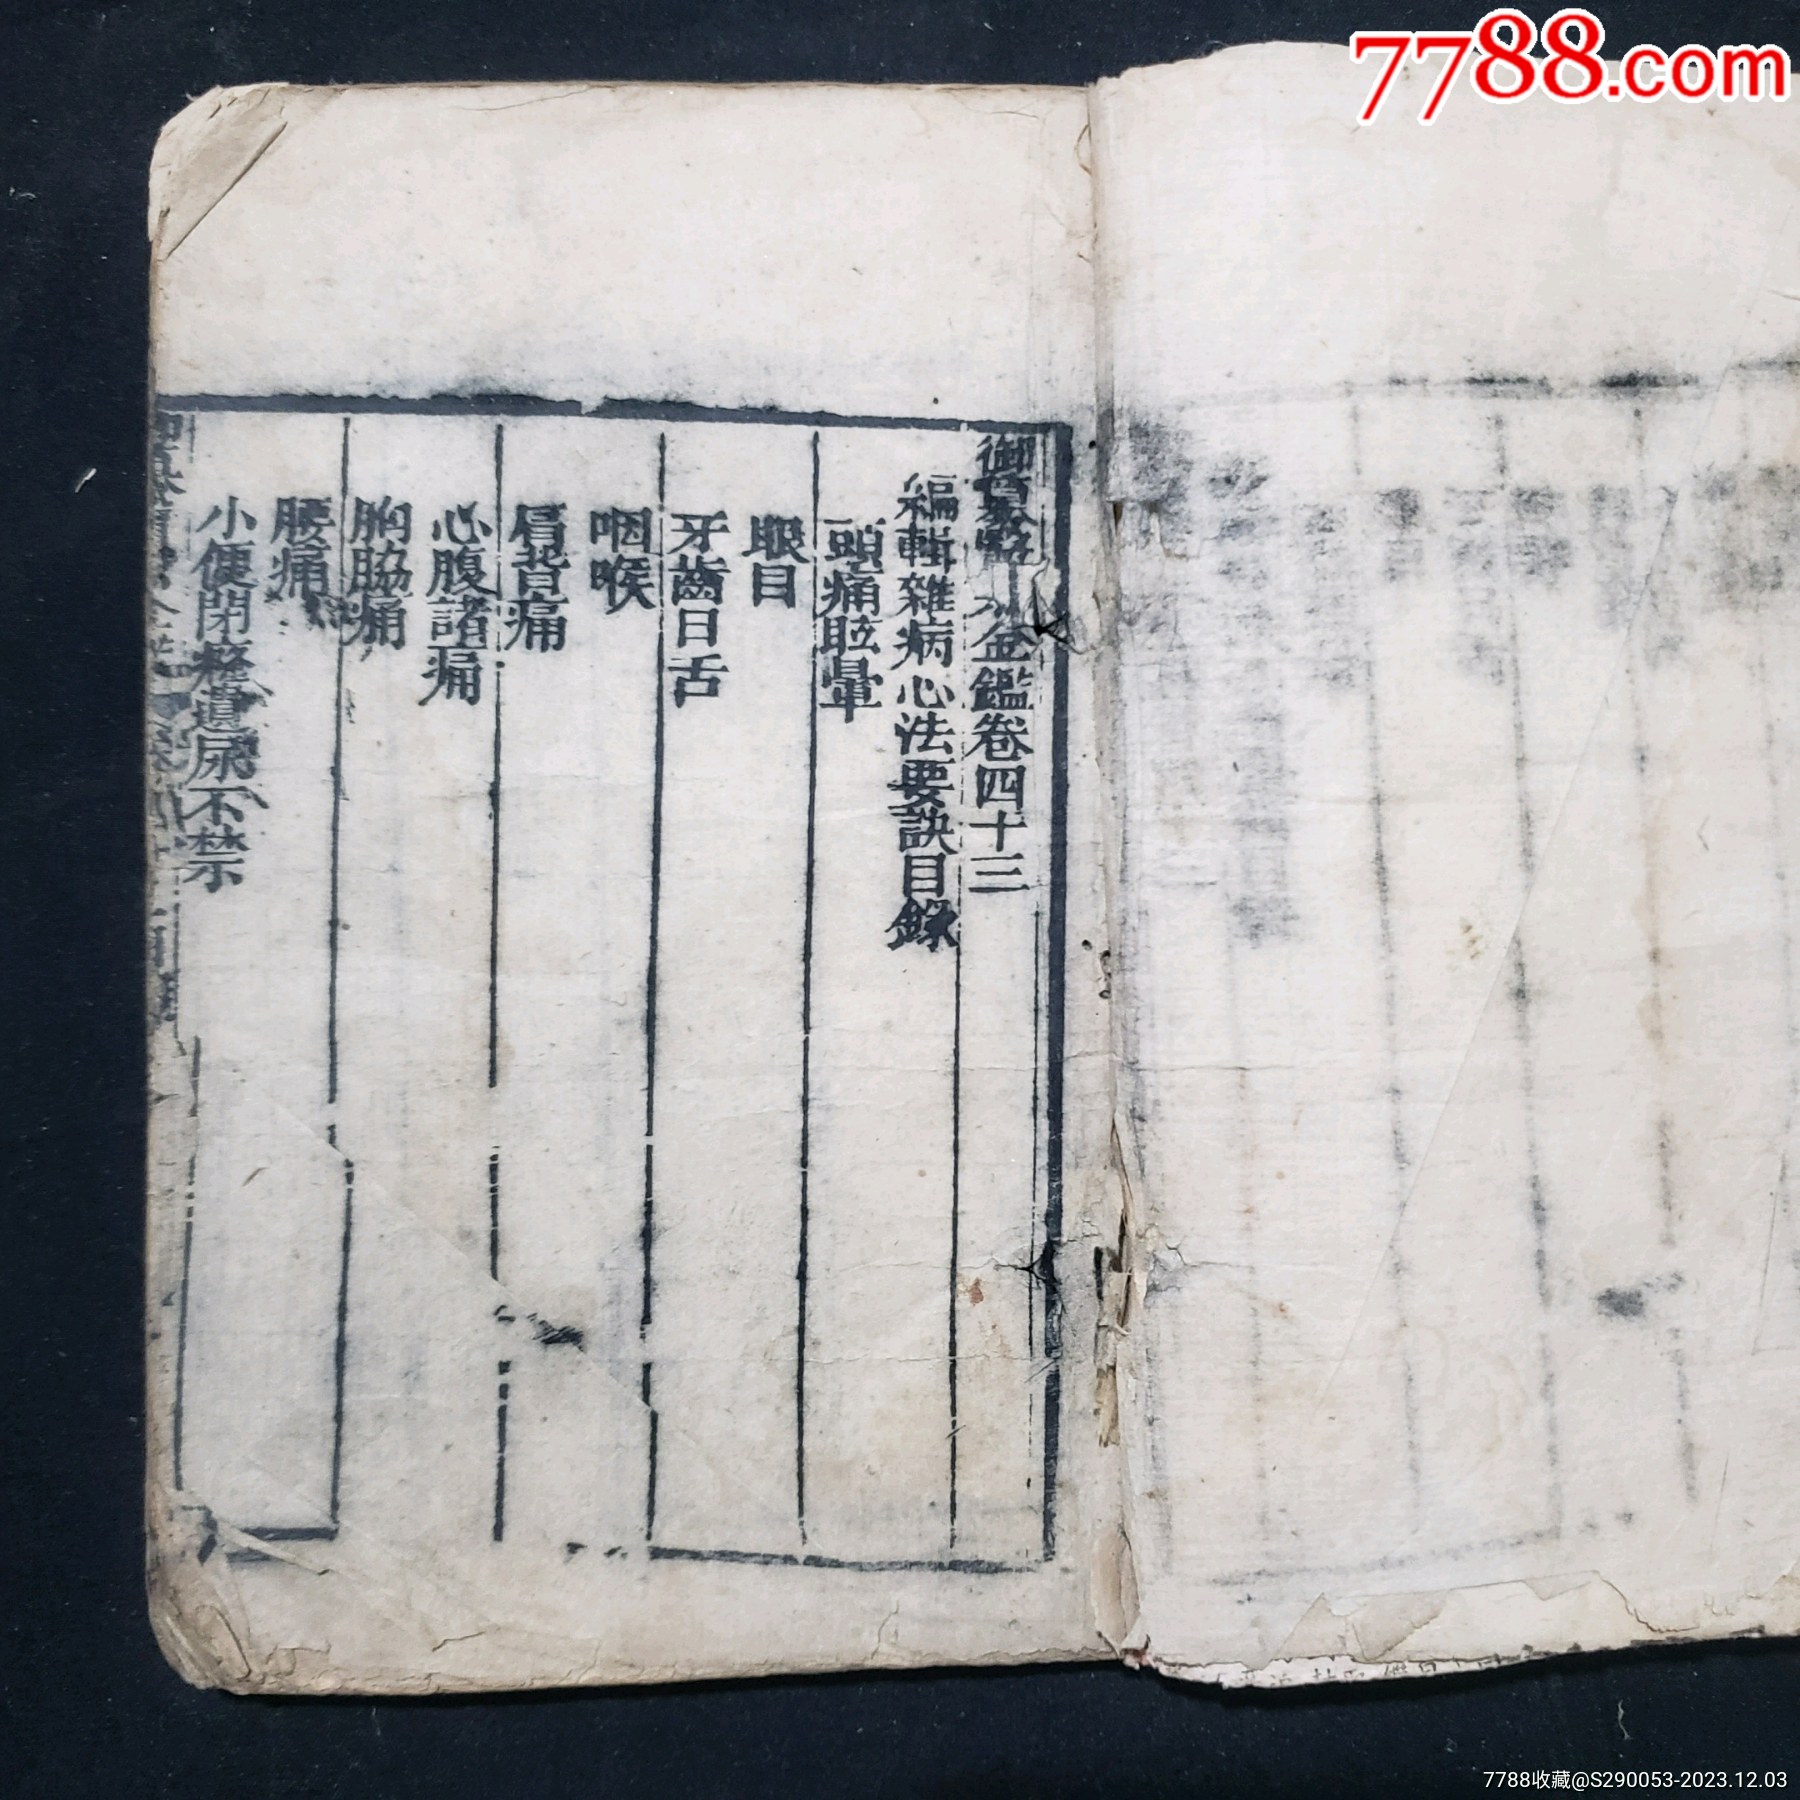 7788.com
御纂醫 金鑑卷四十三
編輯雜病心法要訣目錄
頭痛眩暈
眼目
牙齒口舌
咽喉
肩背痛
心腹諸痛
胸脇痛
腰痛
小便閉癃遺尿不禁
7788收藏@S290053-2023.12.03